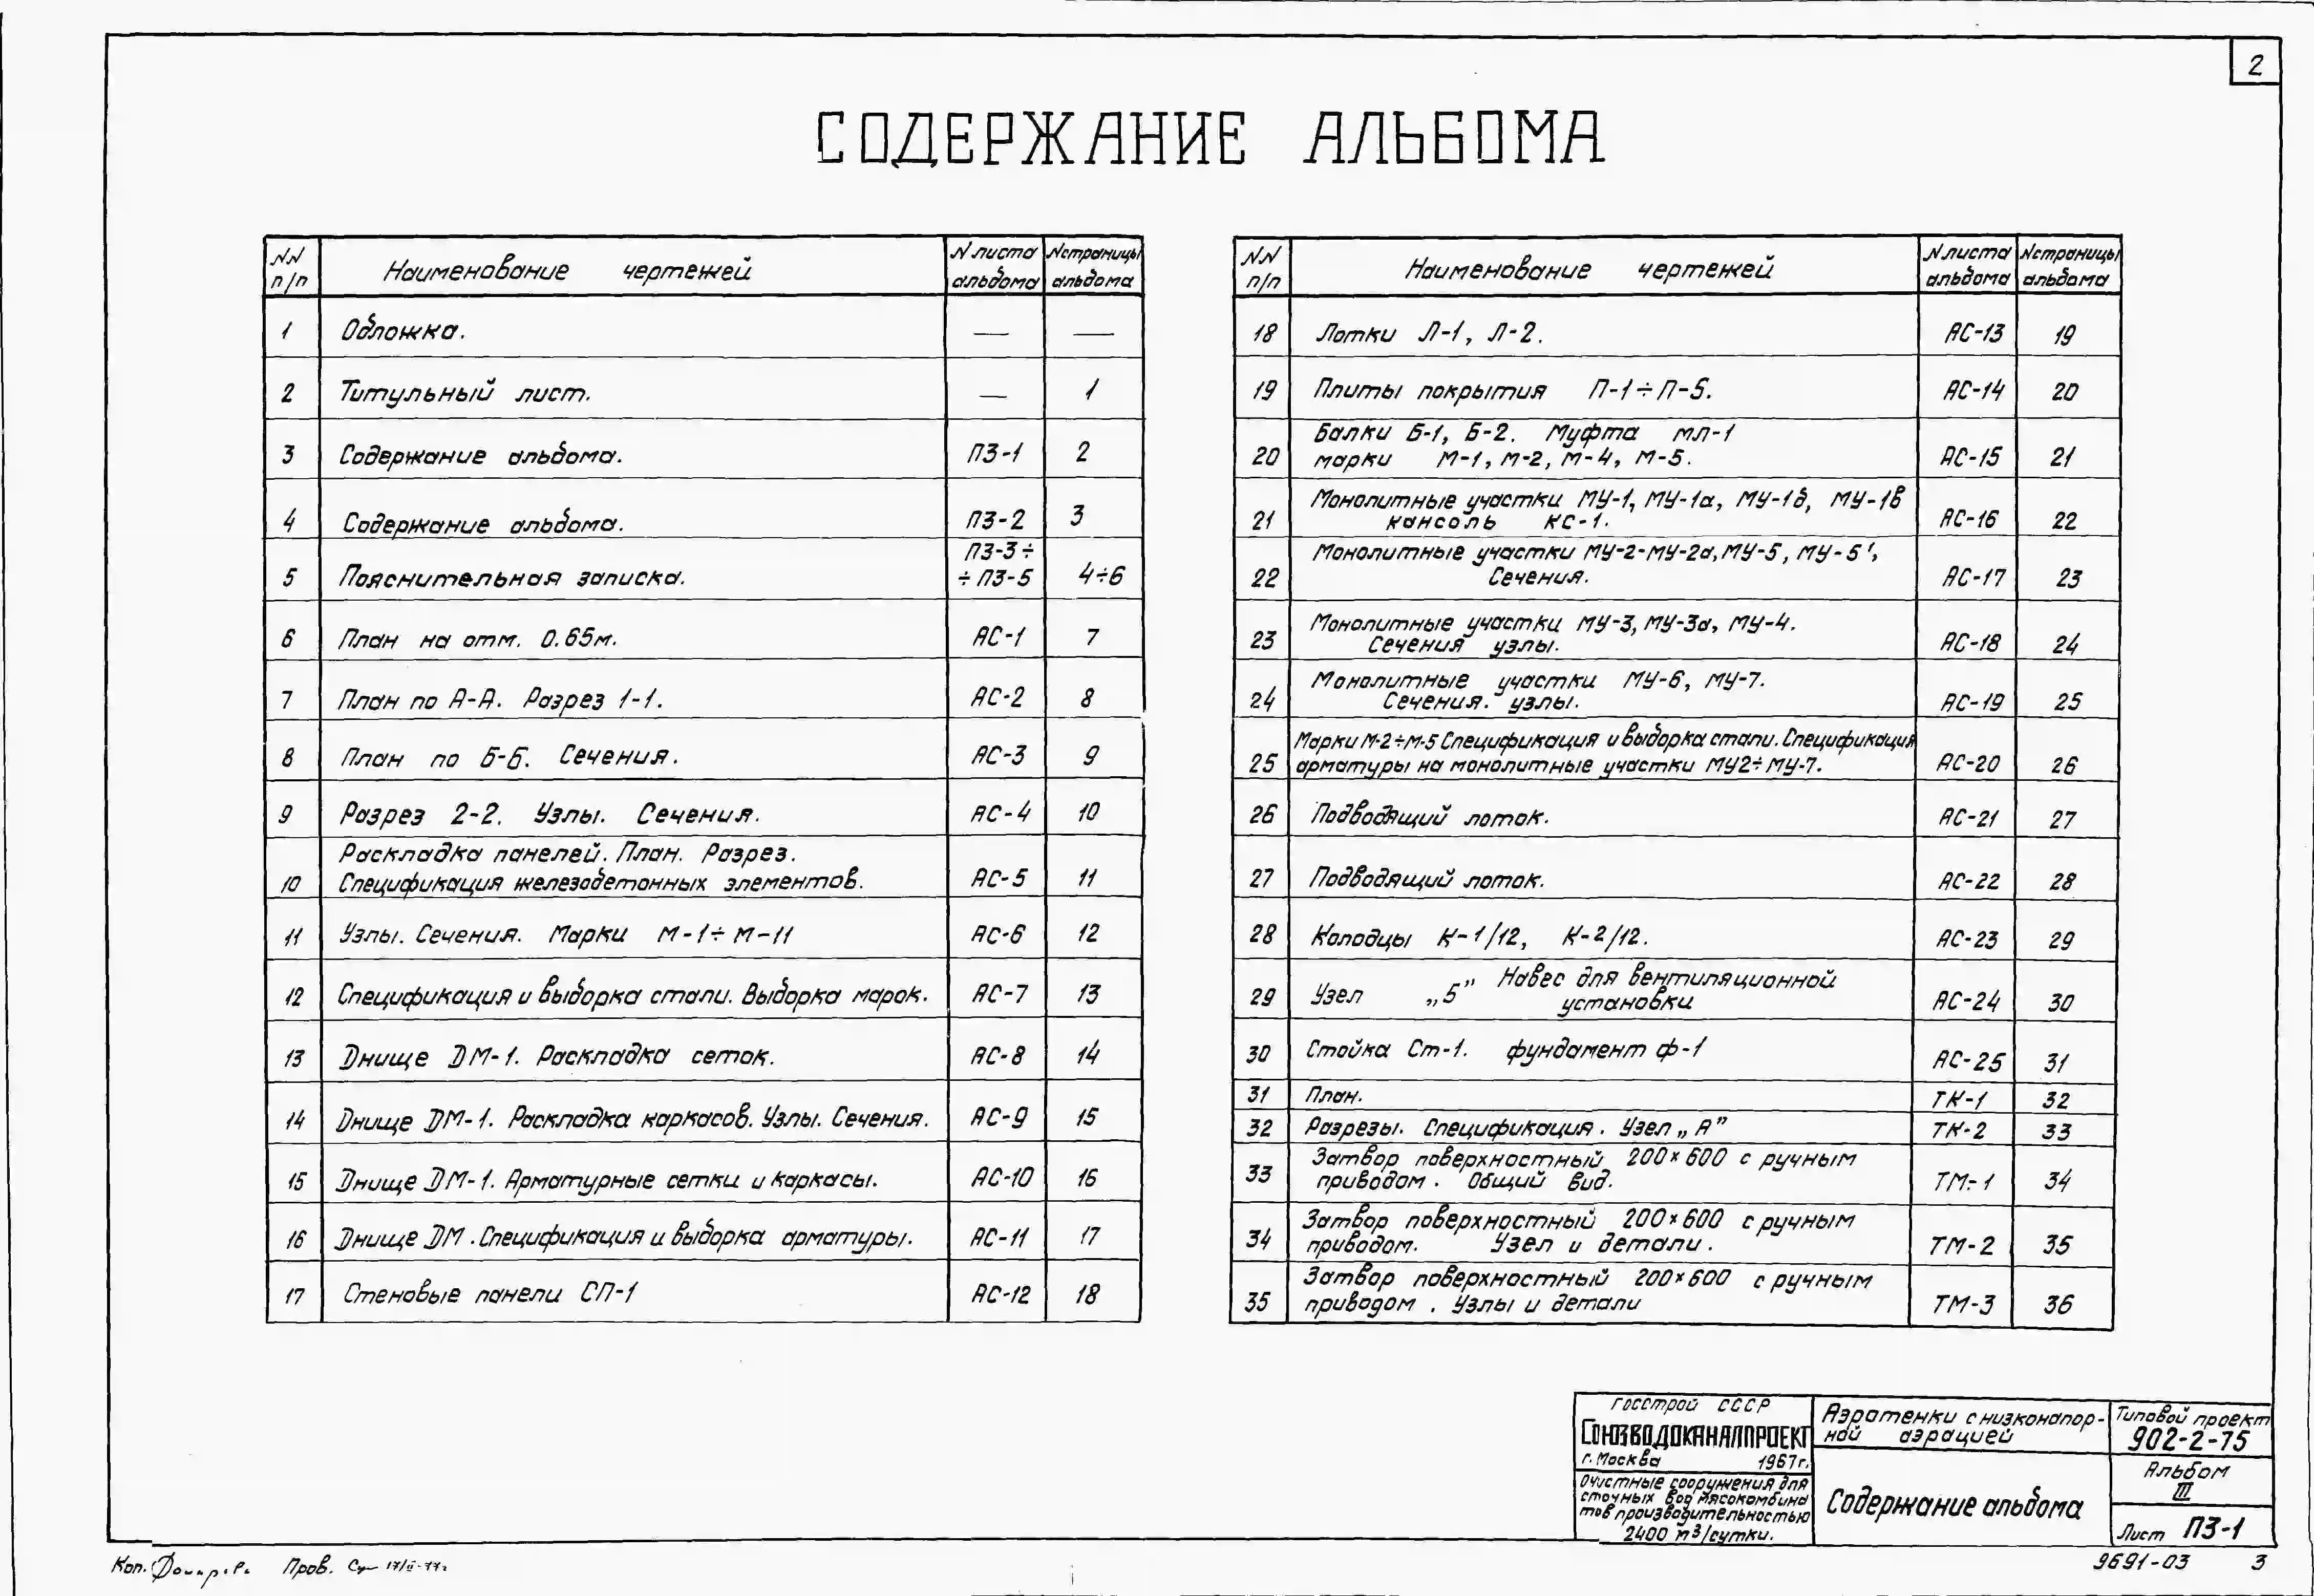 2
СОДЕРЖАНИЕ АЛЬБОМА
NN п/п Наименование чертежей N листа альбома N страницы альбома
1 Обложка. — —
2 Титульный лист. — 1
3 Содержание альбома. ПЗ-1 2
4 Содержание альбома. ПЗ-2 3
5 Пояснительная записка. ПЗ-3÷ ÷ПЗ-5 4÷6
6 План на отм. 0.65м. АС-1 7
7 План по А-А. Разрез 1-1. АС-2 8
8 План по Б-Б. Сечения. АС-3 9
9 Разрез 2-2. Узлы. Сечения. АС-4 10
Раскладка панелей. План. Разрез.
10 Спецификация железобетонных элементов. АС-5 11
11 Узлы. Сечения. Марки М-1÷М-11 АС-6 12
12 Спецификация и выборка стали. Выборка марок. АС-7 13
13 Днище ДМ-1. Раскладка сеток. АС-8 14
14 Днище ДМ-1. Раскладка каркасов. Узлы. Сечения. АС-9 15
15 Днище ДМ-1. Арматурные сетки и каркасы. АС-10 16
16 Днище ДМ. Спецификация и выборка арматуры. АС-11 17
17 Стеновые панели СП-1 АС-12 18
NN п/п Наименование чертежей N листа альбома N страницы альбома
18 Лотки Л-1, Л-2. АС-13 19
19 Плиты покрытия П-1÷П-5. АС-14 20
Балки Б-1, Б-2. Муфта мл-1
20 марки М-1, М-2, М-4, М-5. АС-15 21
Монолитные участки МУ-1, МУ-1а, МУ-1б, МУ-1в
21 консоль КС-1. АС-16 22
Монолитные участки МУ-2-МУ-2а, МУ-5, МУ-5',
22 Сечения. АС-17 23
Монолитные участки МУ-3, МУ-3а, МУ-4.
23 Сечения узлы. АС-18 24
Монолитные участки МУ-6, МУ-7.
24 Сечения. узлы. АС-19 25
Марки М-2÷М-5 Спецификация и выборка стали. Спецификация
25 арматуры на монолитные участки МУ2÷МУ-7. АС-20 26
26 Подводящий лоток. АС-21 27
27 Подводящий лоток. АС-22 28
28 Колодцы К-1/12, К-2/12. АС-23 29
29 Узел „5" Навес для вентиляционной
установки АС-24 30
30 Стойка Ст-1. фундамент ф-1 АС-25 31
31 План. ТК-1 32
32 Разрезы. Спецификация. Узел „А" ТК-2 33
Затвор поверхностный 200×600 с ручным
33 приводом. Общий вид. ТМ-1 34
Затвор поверхностный 200×600 с ручным
34 приводом. Узел и детали. ТМ-2 35
Затвор поверхностный 200×600 с ручным
35 приводом. Узлы и детали ТМ-3 36
Госстрой СССР
СОЮЗВОДОКАНАЛПРОЕКТ
г. Москва 1967г.
Очистные сооружения для
сточных вод мясокомбина
тов производительностью
2400 м³/сутки.
Аэротенки с низконапор-
ной аэрацией
Содержание альбома
Типовой проект
902-2-75
Альбом
III
Лист ПЗ-1
Коп. Пров.
9691-03 3